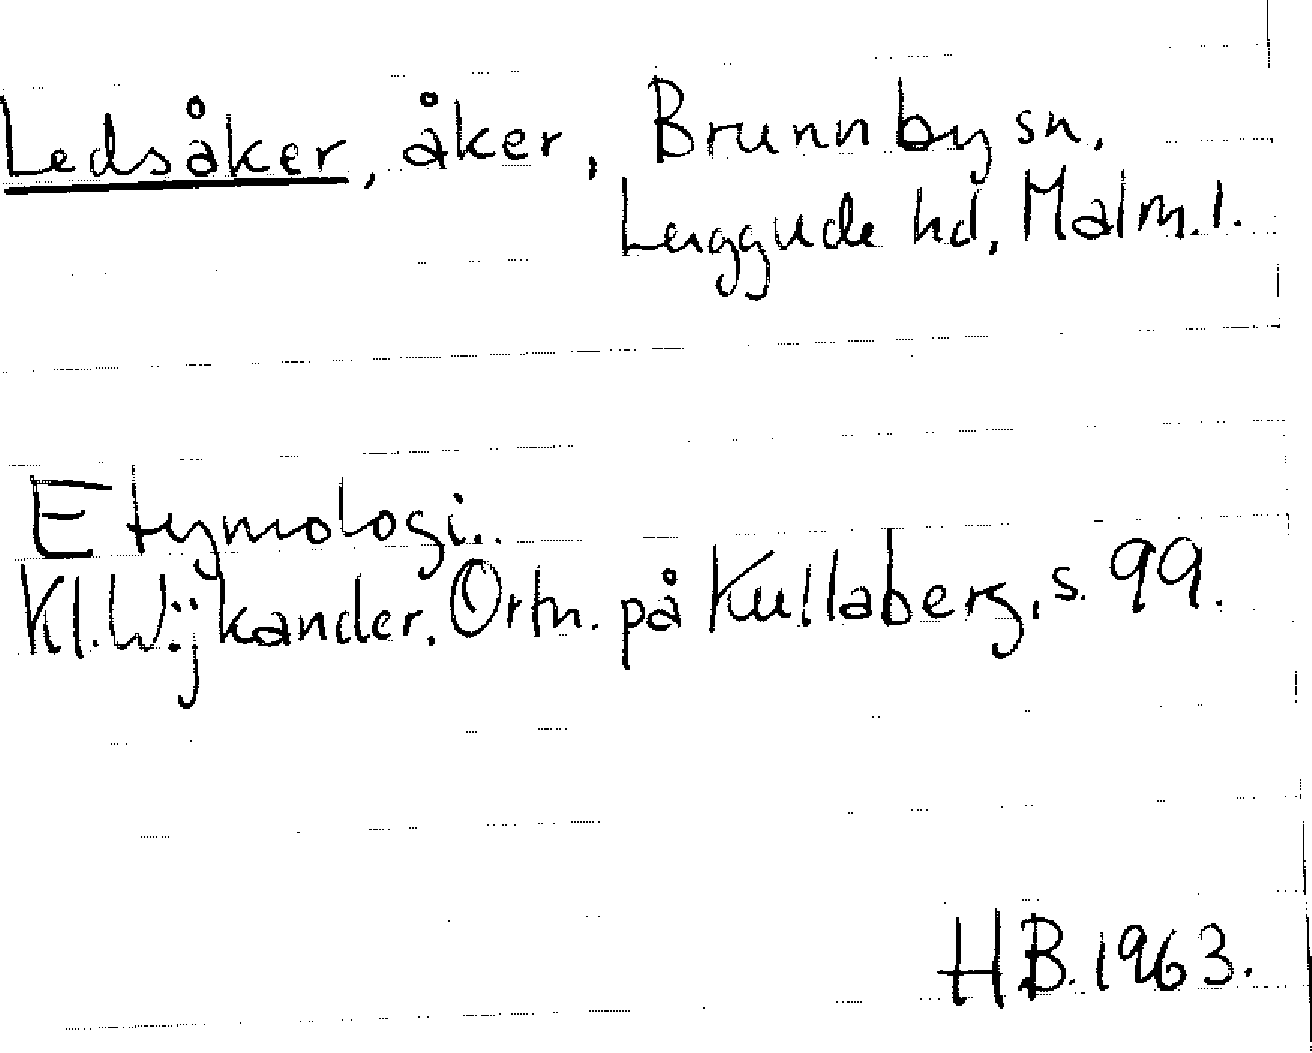 Ledsåker, åker, Brunnby sn,
Luggude hd, Malm. l.
Etymologi.
Kl. Wijkander. Ortn. på Kullaberg, s. 99.
HB. 1963.